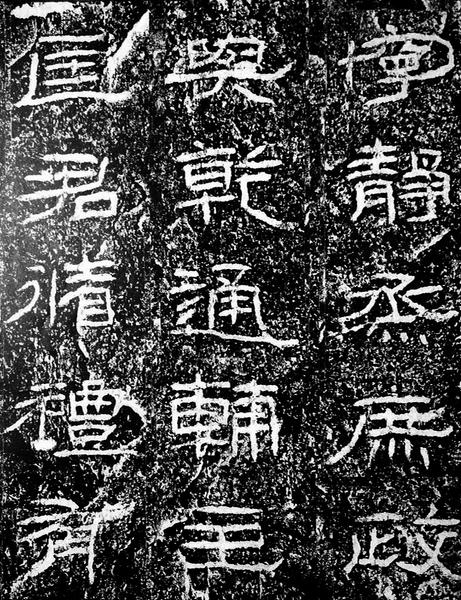 寧靜烝庶政
與乾通輔主
匡君循禮有